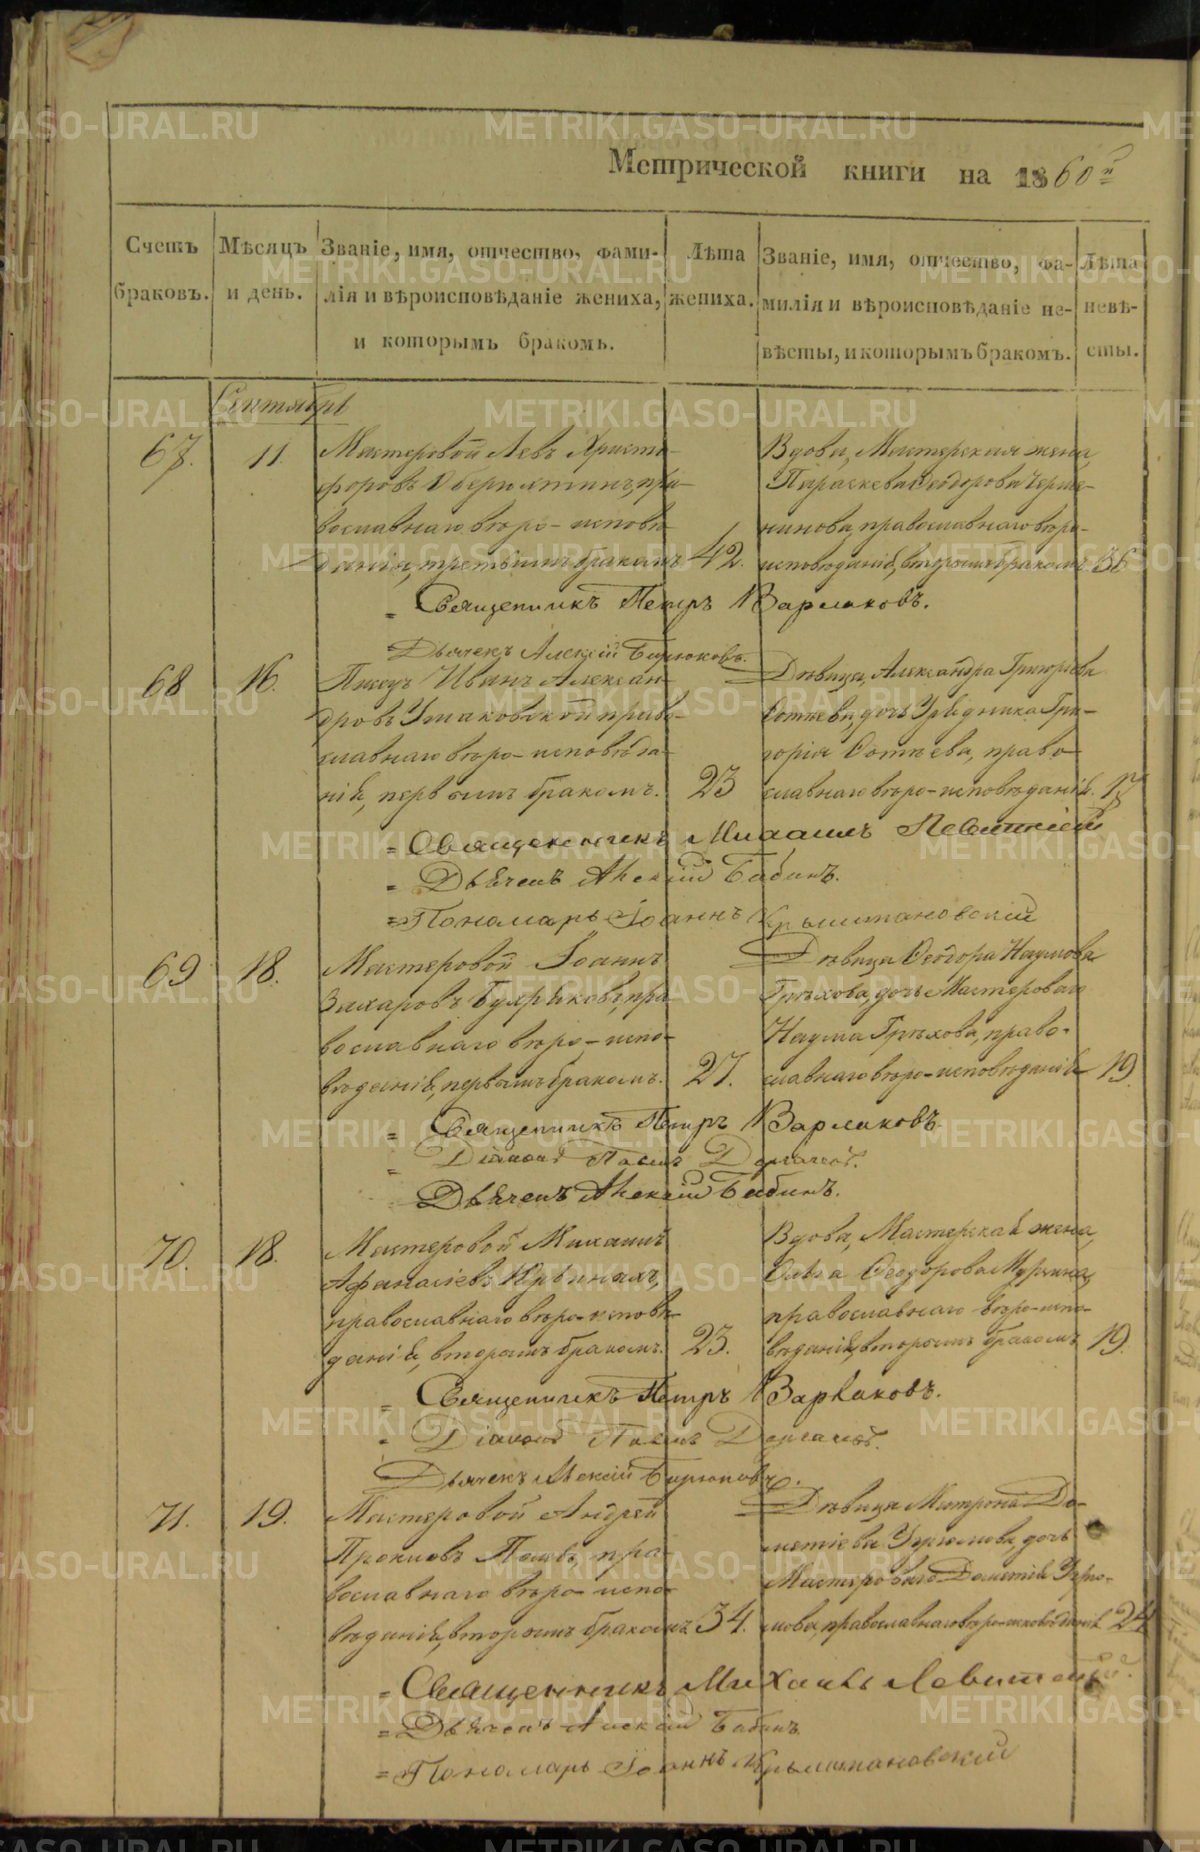 Метрической книги на 1860й
Счетъ браковъ.
Мѣсяцъ и день.
Званіе, имя, отчество, фами-
лія и вѣроисповѣданіе жениха,
и которымъ бракомъ.
Лѣта
жениха.
Званіе, имя, отчество, фа-
милія и вѣроисповѣданіе не-
вѣсты, и которымъ бракомъ.
Лѣта
невѣ-
сты.
Сентябрь
67. 11.
Мастеровой Левъ Христо-
форовъ пра-
вославнаго вѣро-исповѣ-
данія, третьимъ бракомъ 42.
Вдова, Мастерская жена
Параскева Ѳеодорова
православнаго вѣро-
исповѣданія, вторымъ бракомъ 36
Священникъ Петръ Варлаковъ.
Дьячекъ Алексій Бирюковъ.
68 16.
Писецъ Иванъ Алексан-
дровъ право-
славнаго вѣро-исповѣда-
ній, первымъ бракомъ. 23
Дѣвица, Александра Григорьева
дочь Урядника Гри-
горія право-
славнаго вѣро-исповѣданія. 17
Священникъ Михаилъ Левитскій
Дьячекъ Алексій Бабинъ.
Пономарь Іоаннъ
69 18.
Мастеровой Іоаннъ
Захаровъ пра-
вославнаго вѣро-испо-
вѣданія, первымъ бракомъ. 27.
Дѣвица Ѳеодора Наумова
Грѣхова, дочь Мастероваго
Наума Грѣхова, право-
славнаго вѣро-исповѣданія 19
Священникъ Петръ Варлаковъ.
Діаконъ Павелъ
Дьячекъ Алексій Бабинъ.
70. 18.
Мастеровой Михаилъ
Афанасіевъ
православнаго вѣро-исповѣ-
даній, вторымъ бракомъ. 23.
Вдова, Мастерская жена,
Ольга Ѳеодорова
православнаго вѣро-испо-
вѣданія, вторымъ бракомъ 19.
Священникъ Петръ Варлаковъ.
Діаконъ Павелъ
Дьячекъ Алексій Бирюковъ.
71. 19.
Мастеровой Андрей
Прокловъ пра-
вославнаго вѣро-испо-
вѣданія, вторымъ бракомъ 34.
Дѣвица Матрона До-
метіева дочь
Мастероваго Дометія
православнаго вѣро-исповѣданія 24
Священникъ Михаилъ Левитскій.
Дьячекъ Алексій Бабинъ
Пономарь Іоаннъ
METRIKI.GASO-URAL.RU